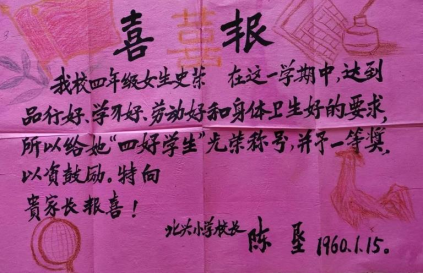 喜 囍 报
我校四年级女生史荣 在这一学期中,达到
品行好、学习好、劳动好和身体卫生好的要求,
所以给她“四好学生”光荣称号,并予一等奖,
以资鼓励。特向
贵家长报喜!
北兴小学校长 陈 垦 1960.1.15。